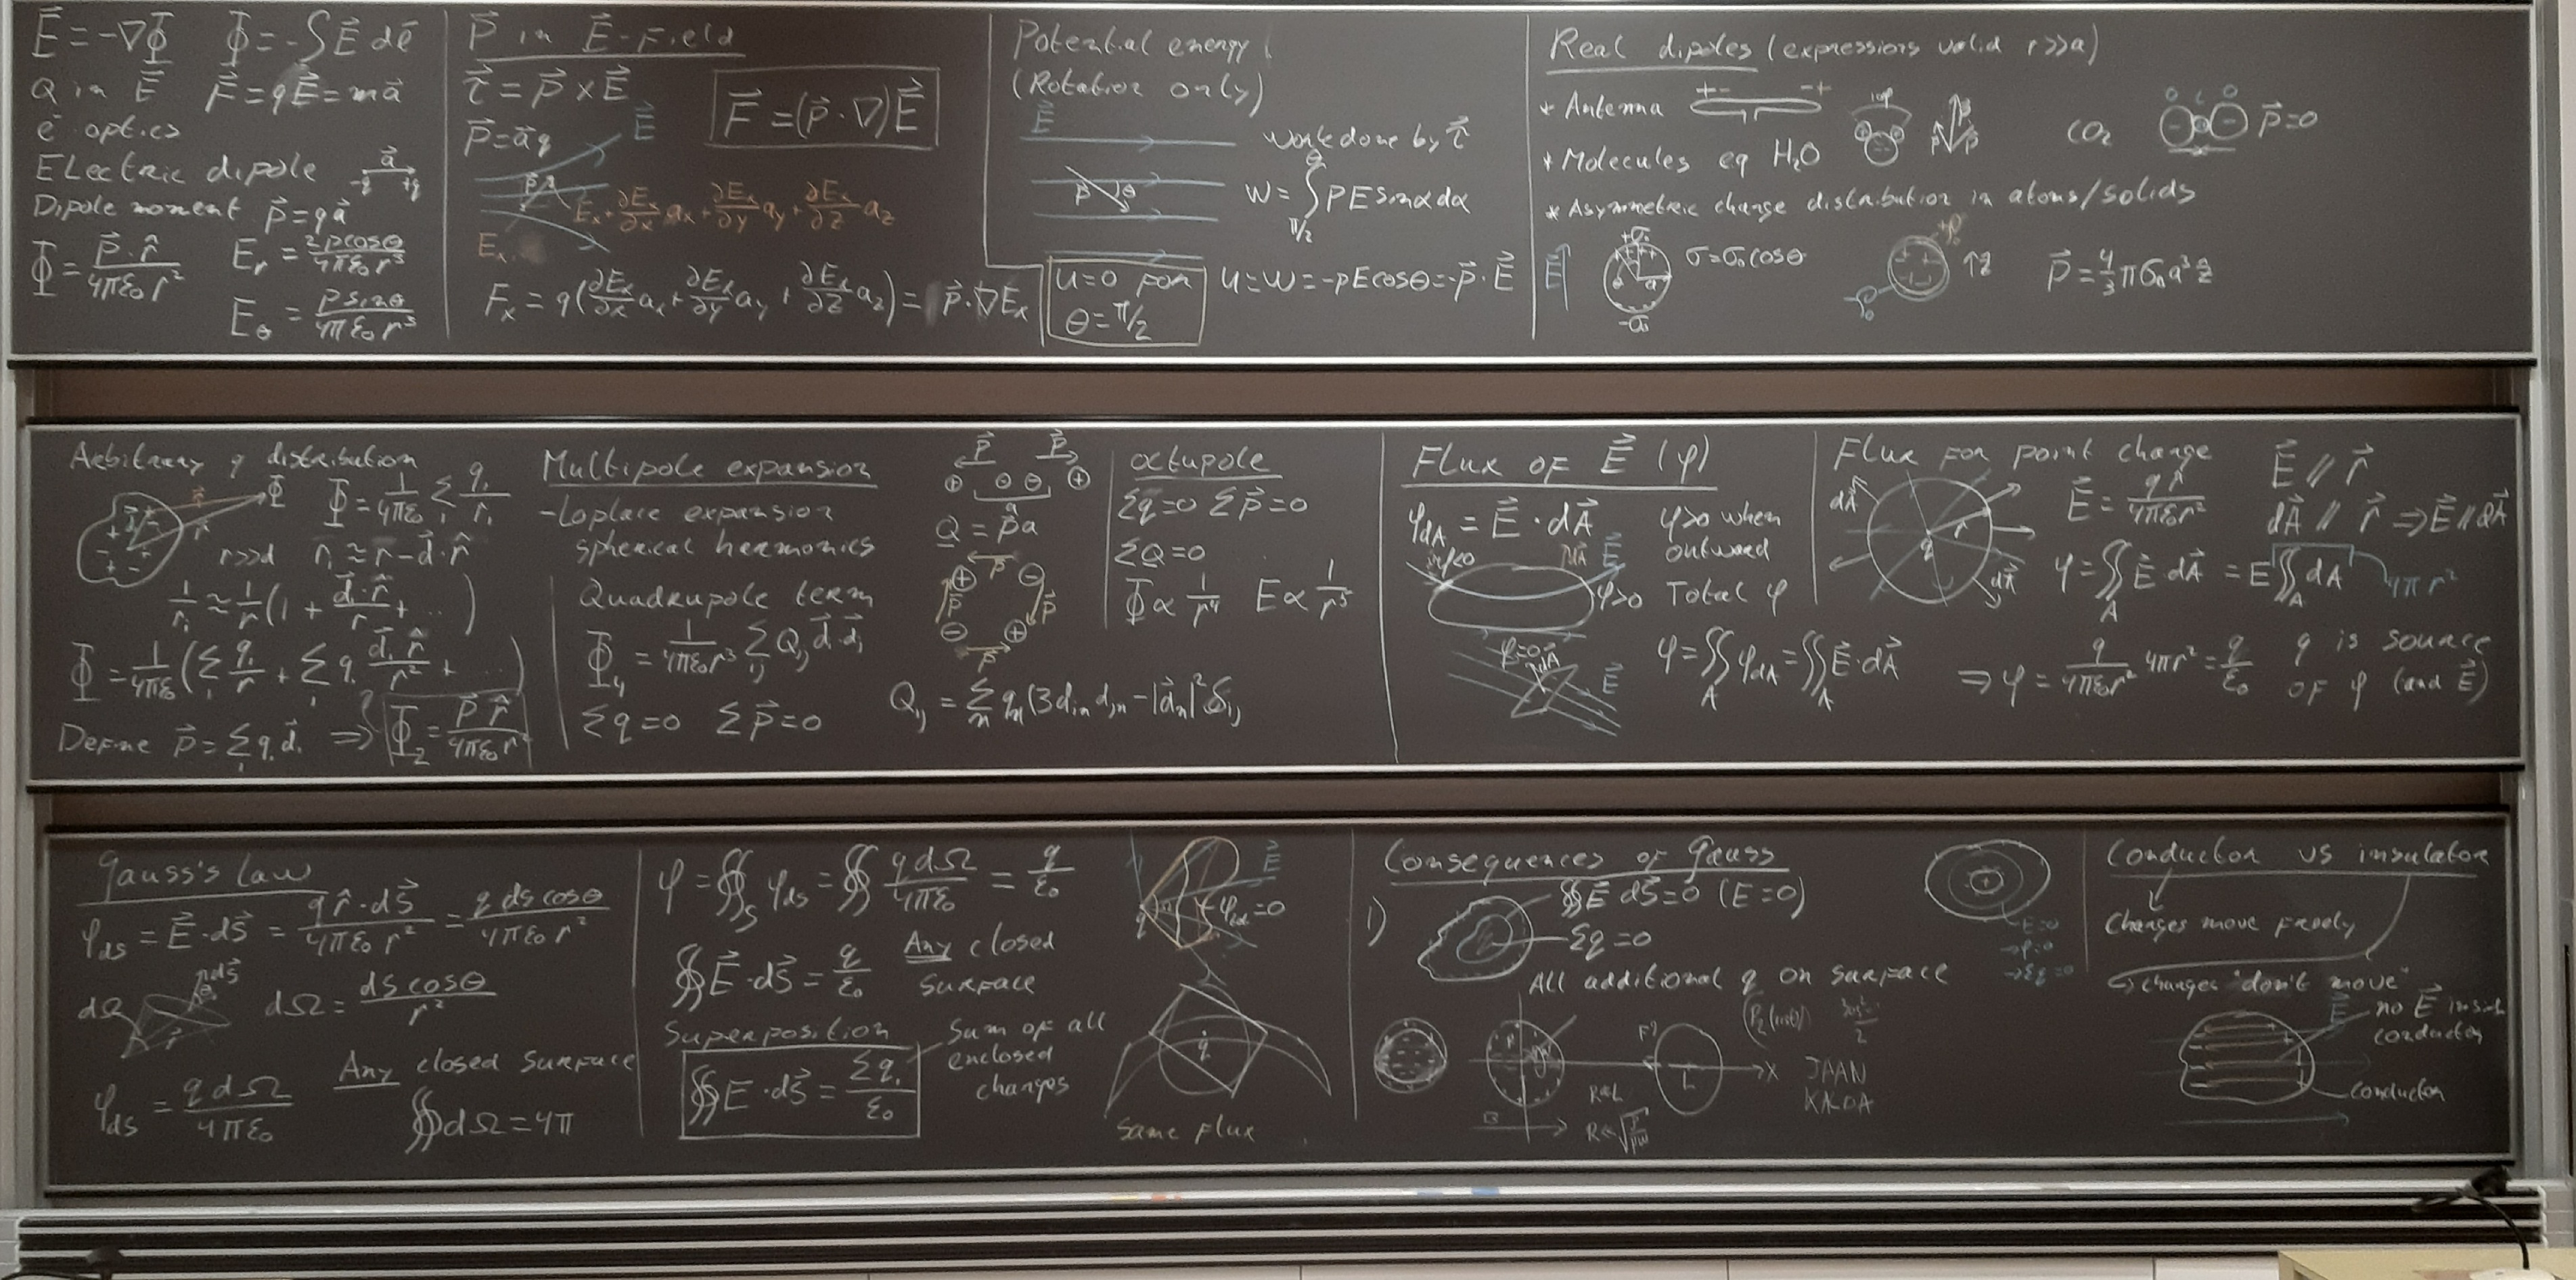 E⃗ = -∇Φ Φ = -∫E⃗ dl⃗
Q in E⃗ F⃗ = qE⃗ = ma⃗
e⁻ optics
Electric dipole a⃗ -q +q
Dipole moment p⃗ = qa⃗
Φ = p⃗·r̂/4πε₀r² E_r = 2pcosθ/4πε₀r³
E_θ = psinθ/4πε₀r³
P⃗ in E⃗-Field
τ⃗ = p⃗ × E⃗
F⃗ = (p⃗·∇)E⃗
p⃗ = a⃗q E⃗
E_x + ∂E_x/∂x a_x + ∂E_x/∂y a_y + ∂E_x/∂z a_z
E_x
F_x = q(∂E_x/∂x a_x + ∂E_x/∂y a_y + ∂E_x/∂z a_z) = p⃗·∇E_x
Potential energy
(Rotation only)
E⃗
p⃗ θ
work done by τ⃗
W = ∫_{π/2}^{θ} PE sinα dα
U=0 for
θ = π/2
U = W = -pEcosθ = -p⃗·E⃗
Real dipoles (expressions valid r>>a)
* Antenna +- -+
* Molecules eg H₂O CO₂ O C O p⃗=0
* Asymmetric charge distribution in atoms/solids
E⃗ +σ₀ σ=σ₀cosθ -σ₀ a
+ρ₀ -ρ₀ ↑ẑ
p⃗ = 4/3 πσ₀a³ẑ
Arbitrary q distribution
Φ = 1/4πε₀ Σ_i q_i/r_i
r>>d r_i ≈ r - d⃗·r̂
1/r_i ≈ 1/r (1 + d⃗_i·r̂/r + ...)
Φ = 1/4πε₀ (Σ_i q_i/r + Σ_i q_i d⃗_i·r̂/r² + ...)
Define p⃗ = Σ_i q_i d⃗_i ⇒ Φ₂ = p⃗ r̂/4πε₀r²
Multipole expansion
- Laplace expansion
spherical harmonics
Quadrupole term
Φ₄ = 1/4πε₀r³ Σ_ij Q_ij d⃗_i d⃗_j
Σq=0 Σp⃗=0
p⃗ p⃗
+ - - +
a
Q = p⃗a
Q_ij = Σ_n q_n(3d_in d_jn - |d⃗_n|²δ_ij
octupole
Σq=0 Σp⃗=0
ΣQ=0
Φ ∝ 1/r⁴ E ∝ 1/r⁵
Flux of E⃗ (φ)
φ_dA = E⃗·dA⃗ φ>0 when
outward
φ<0 dA⃗ E⃗
φ>0 Total φ
φ=0 dA⃗ E⃗
φ = ∬_A φ_dA = ∬_A E⃗·dA⃗
Flux for point charge
dA⃗ r q dA⃗
E⃗ = q r̂/4πε₀r²
E⃗ // r⃗
dA⃗ // r⃗ ⇒ E⃗ // dA⃗
φ = ∬_A E⃗ dA⃗ = E∬_A dA 4πr²
⇒ φ = q/4πε₀r² 4πr² = q/ε₀
q is source
of φ (and E⃗)
Gauss's law
φ_dS = E⃗·dS⃗ = q r̂·dS⃗/4πε₀r² = q dS cosθ/4πε₀r²
dΩ dS⃗ θ r⃗
dΩ = dS cosθ/r²
φ_dS = q dΩ/4πε₀
Any closed surface
∯dΩ = 4π
φ = ∯_S φ_dS = ∯ q dΩ/4πε₀ = q/ε₀
∯E⃗·dS⃗ = q/ε₀
Any closed
surface
Superposition
∯E·dS⃗ = Σq_i/ε₀
Sum of all
enclosed
charges
E⃗
q φ_tot=0
q
Same flux
Consequences of Gauss
1)
∯E⃗ dS⃗=0 (E=0)
Σq=0
All additional q on surface
E=0
→φ=0
→Σq=0
F?
R<<L
L
x
B
JAAN
KALDA
Conductor vs insulator
Charges move freely
↪ charges "don't move"
E⃗
no E⃗ inside
conductor
conductor